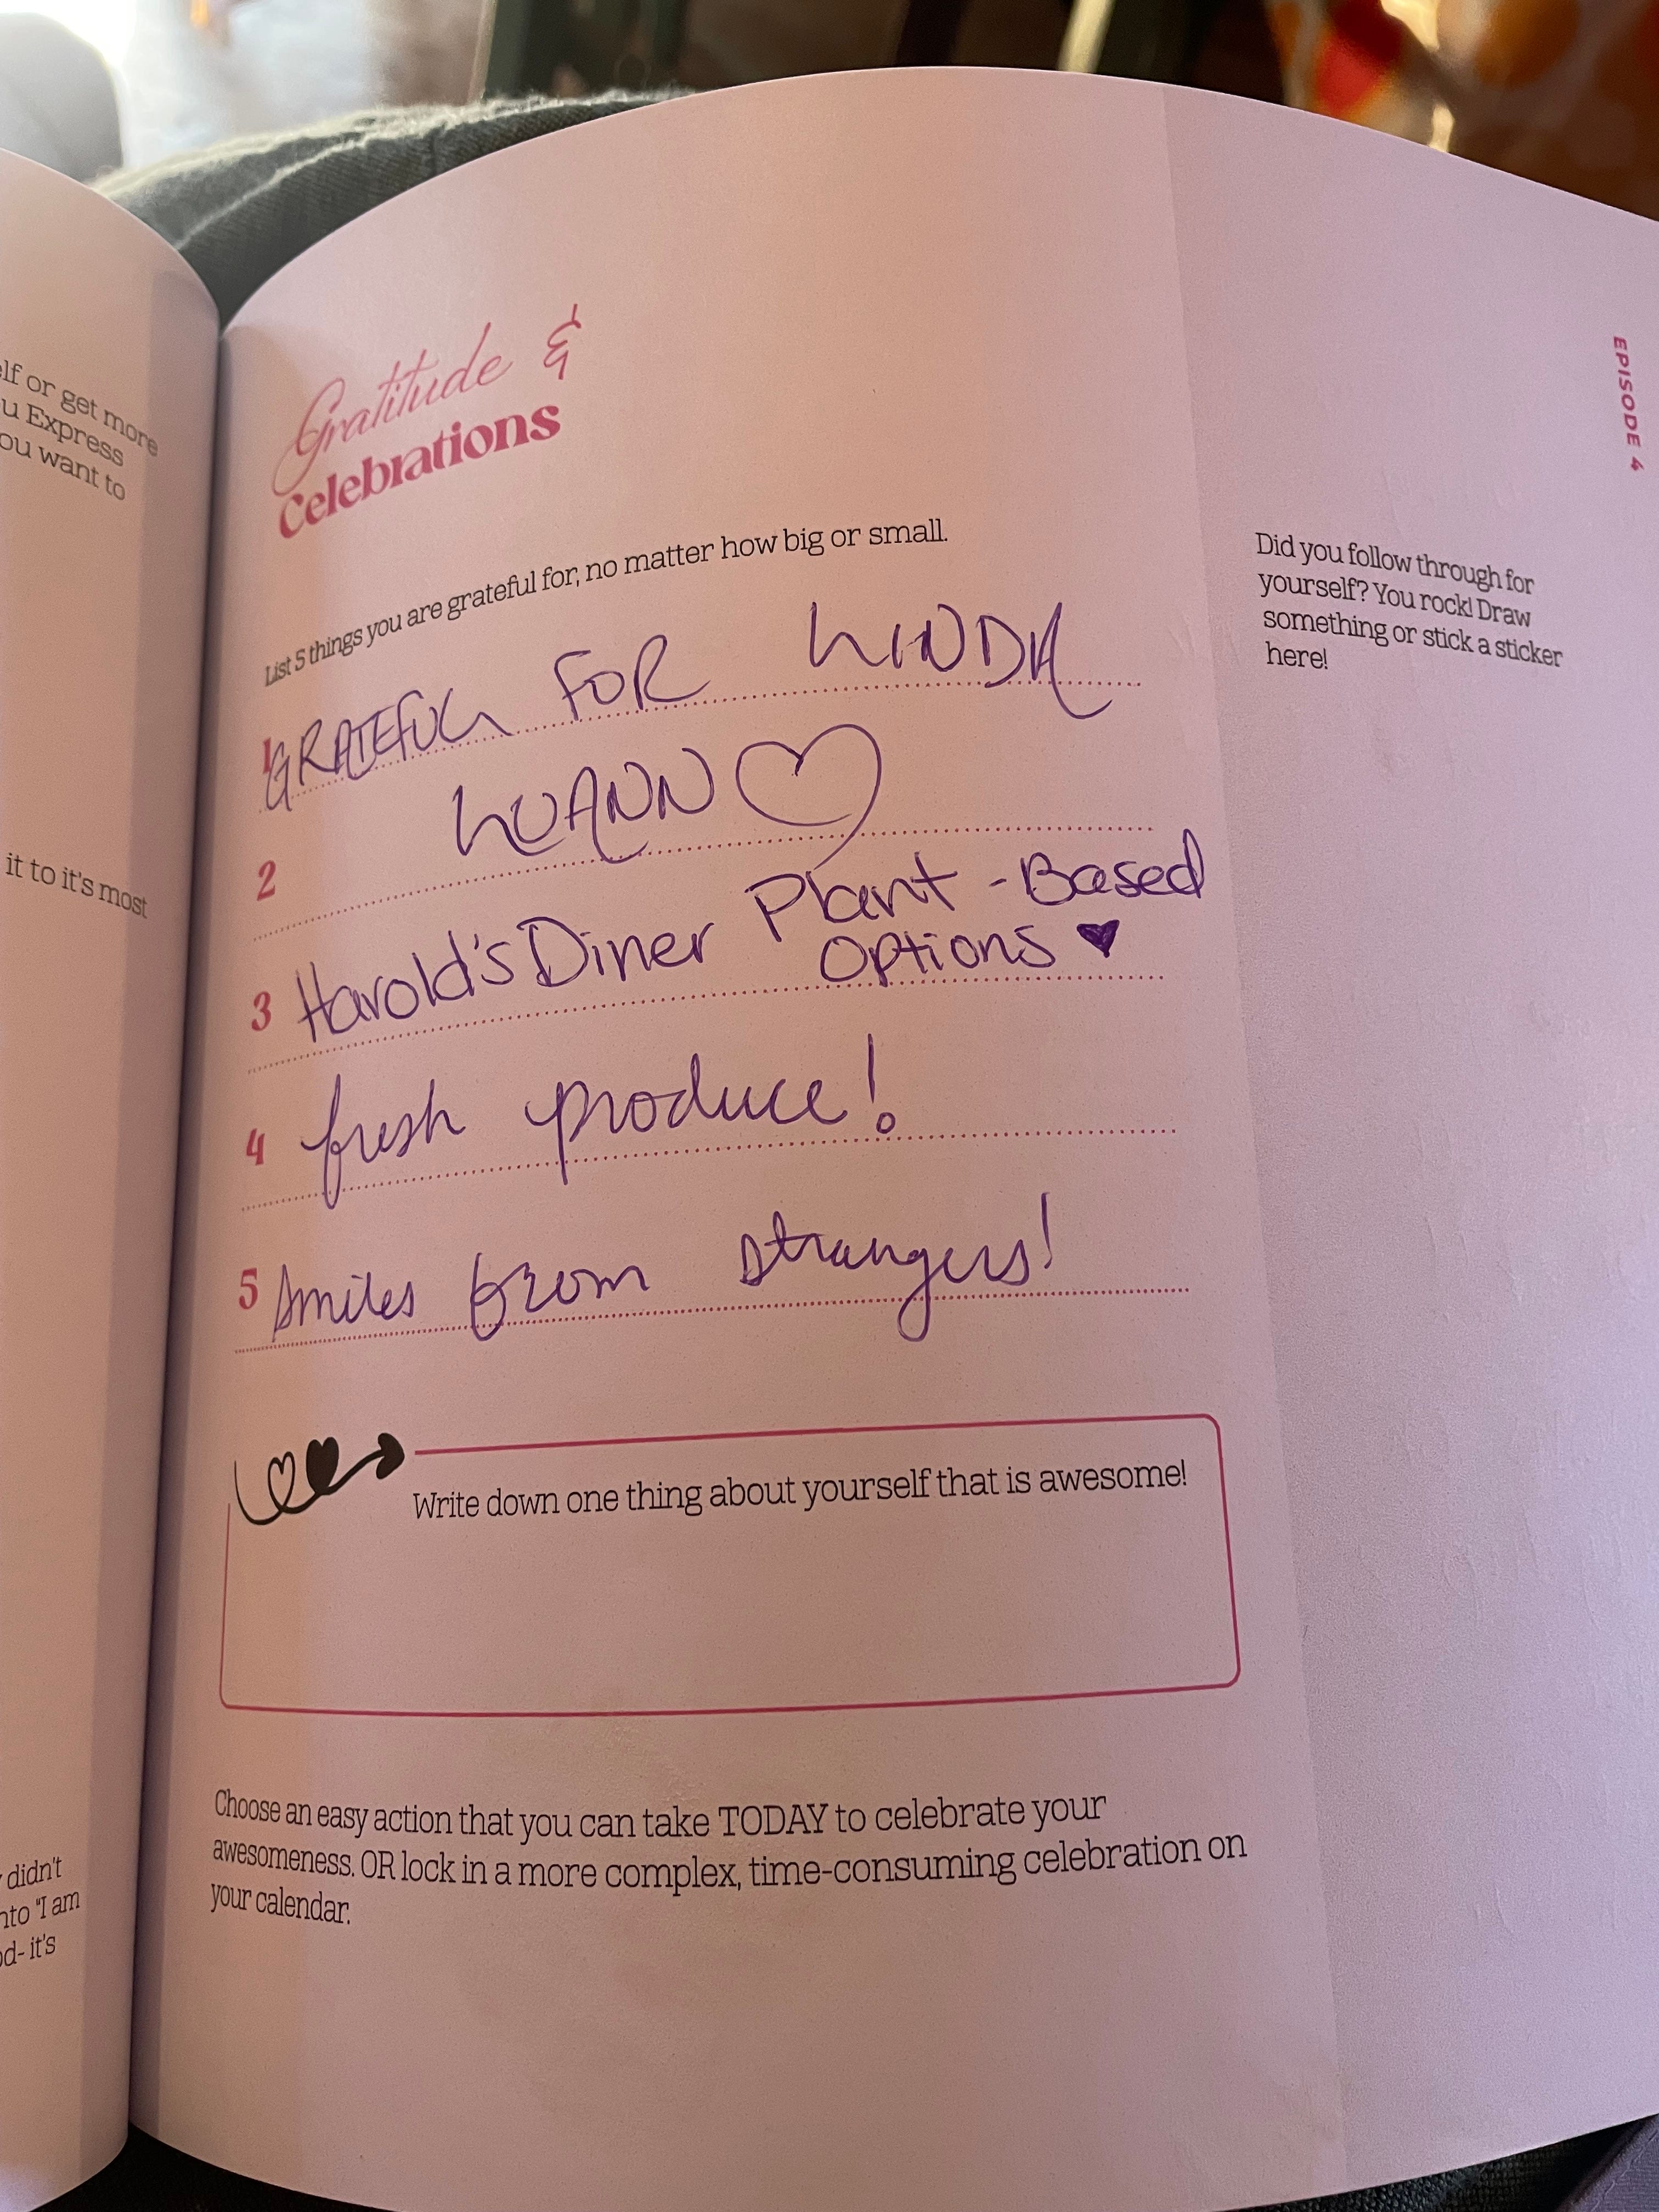 elf or get more
u Express
ou want to
it to it's most
didn't
nto "I am
od- it's
Gratitude &
Celebrations
List 5 things you are grateful for, no matter how big or small.
1 GRATEFUL FOR LINDA
LUANN
2
Plant-Based
3 Harold's Diner Options ♥
4 fresh produce!
5 smiles from strangers!
Write down one thing about yourself that is awesome!
Choose an easy action that you can take TODAY to celebrate your
awesomeness. OR lock in a more complex, time-consuming celebration on
your calendar.
EPISODE 4
Did you follow through for
yourself? You rock! Draw
something or stick a sticker
here!